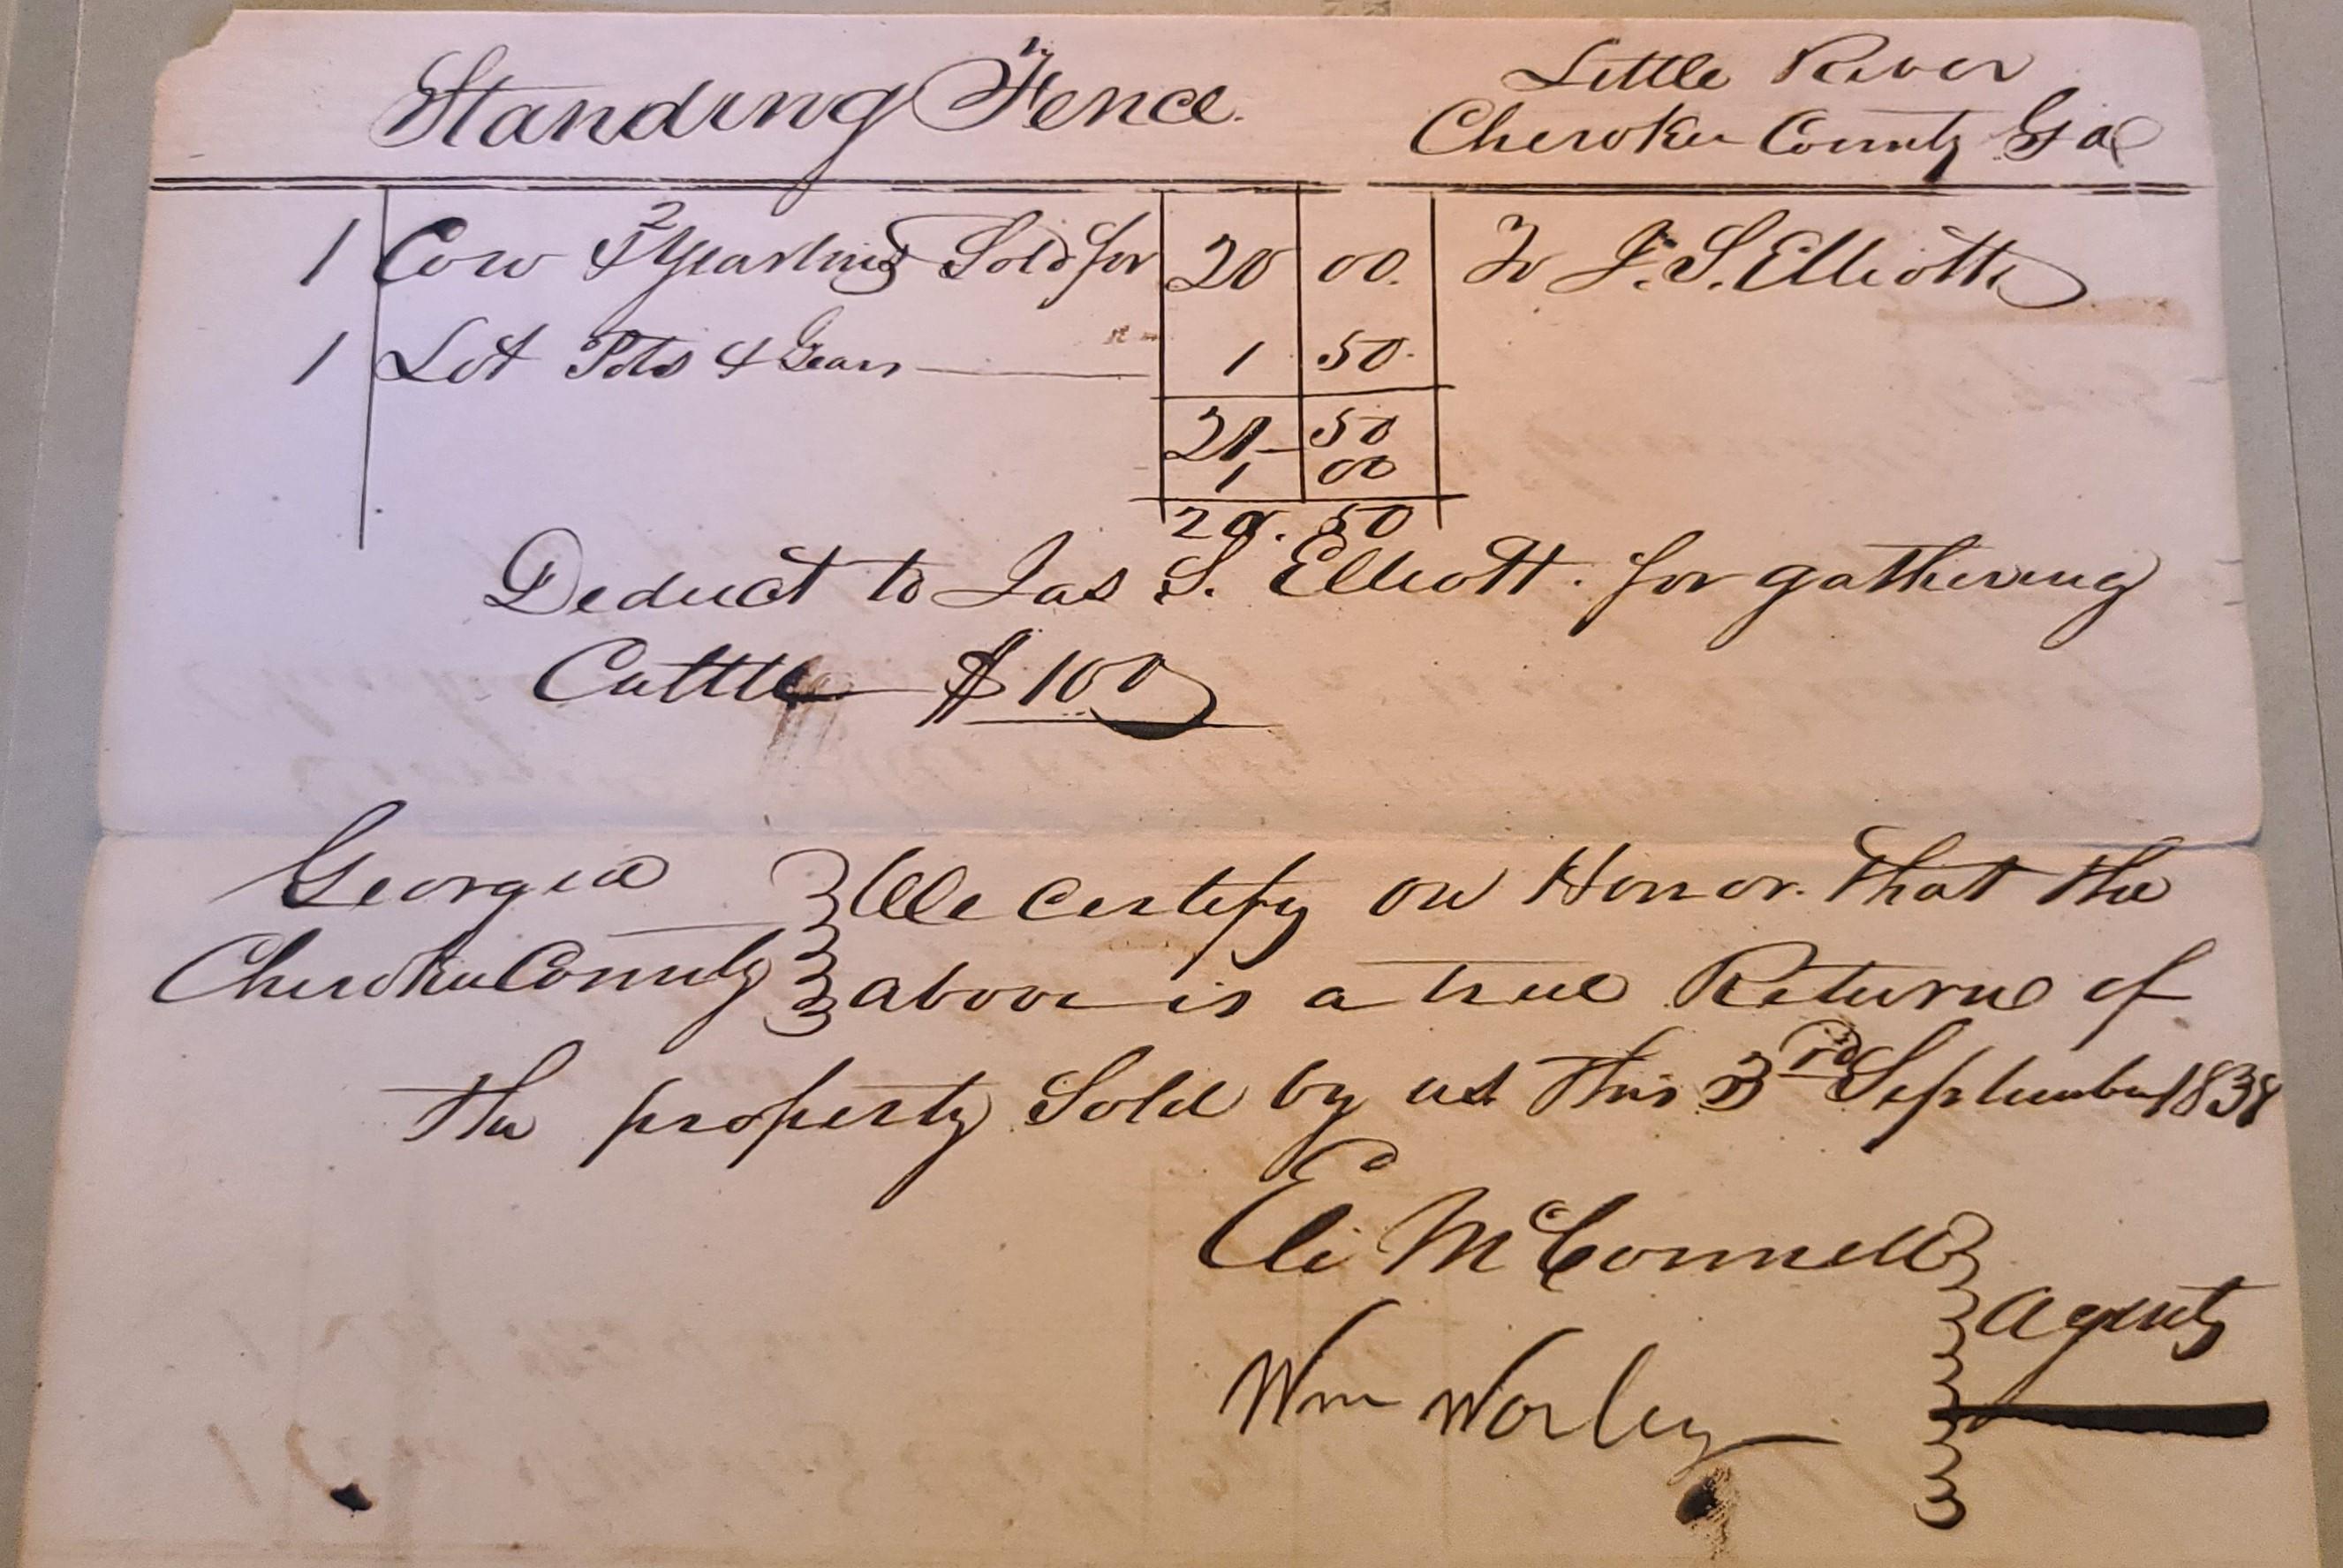 Standing Fence.
Little River
Cherokee County Ga
1 Cow & 2 Yearlings Sold for 20 00. To J. S. Elliott
1 Lot Pots & Gears 1 50
21 50
1 00
20. 50
Deduct to Jas S. Elliott. for gathering
Cattle $ 100
Georgia We certify on Honor. that the
Cherokee County above is a true Return of
the property Sold by us this 3rd September 1838
Eli McConnell
Agents
Wm Worley